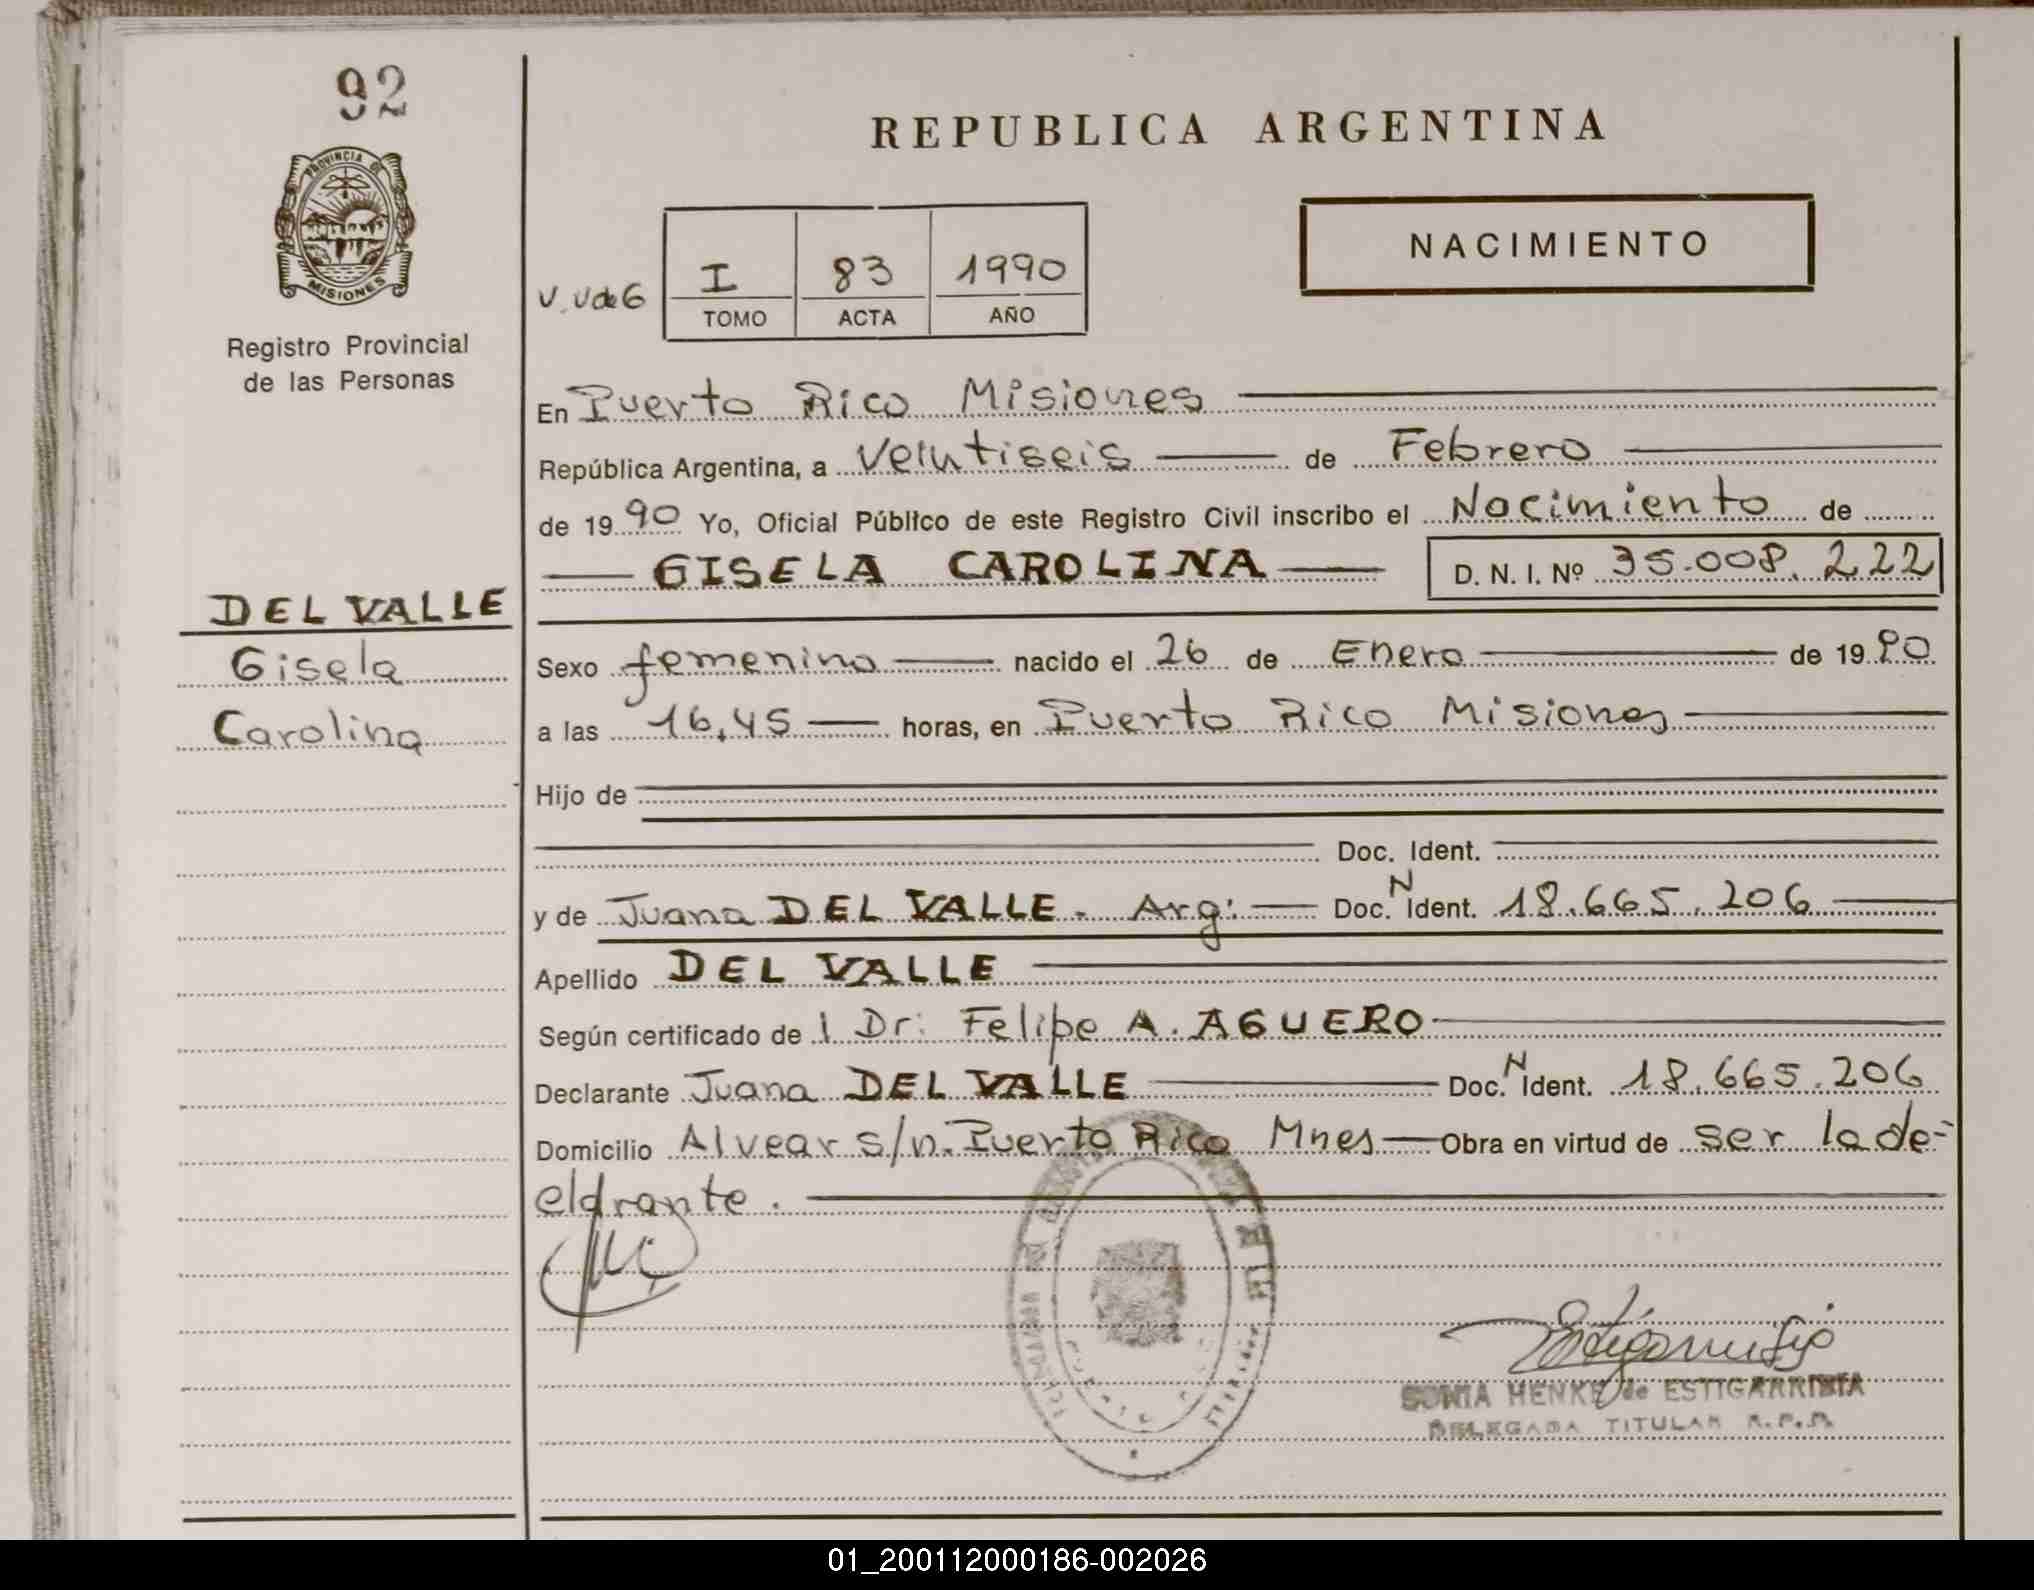 92
REPUBLICA ARGENTINA
PROVINCIA DE
MISIONES
NACIMIENTO
V. V de 6
I 83 1990
TOMO ACTA AÑO
Registro Provincial
de las Personas
En Puerto Rico Misiones
República Argentina, a Veintiseis de Febrero
de 1990 Yo, Oficial Público de este Registro Civil inscribo el Nacimiento de
GISELA CAROLINA D. N. I. Nº 35.008.222
DEL VALLE
Gisela
Carolina
Sexo femenino nacido el 26 de Enero de 1990
a las 16,45 horas, en Puerto Rico Misiones
Hijo de
Doc. Ident.
y de Juana DEL VALLE. Arg: Doc. N Ident. 18.665.206
Apellido DEL VALLE
Según certificado de l Dr: Felipe A. AGUERO
Declarante Juana DEL VALLE Doc. N Ident. 18.665.206
Domicilio Alvear s/n. Puerto Rico Mnes Obra en virtud de ser la de-
clarante.
SONIA HENKE de ESTIGARRIBIA
DELEGADA TITULAR R.P.P.
01_200112000186-002026